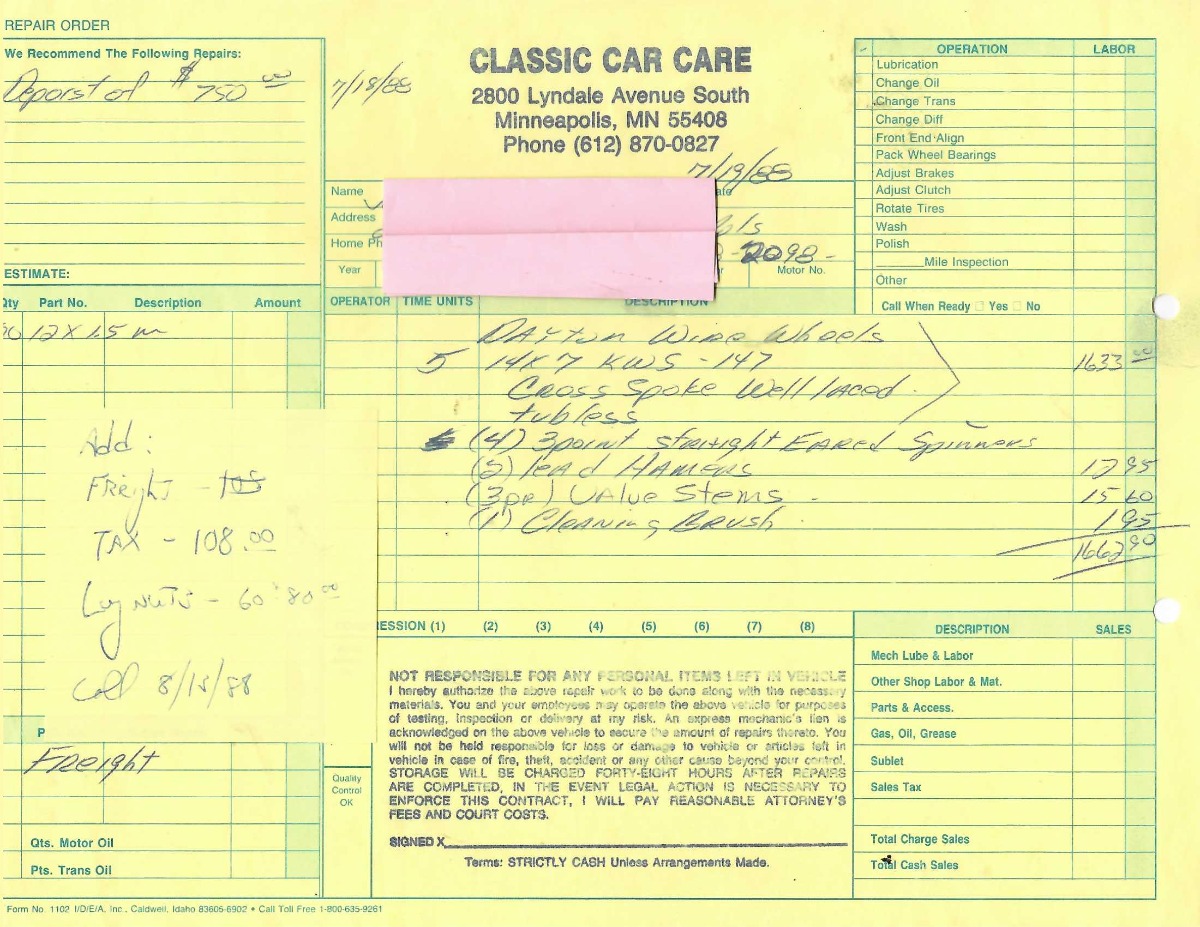 REPAIR ORDER
We Recommend The Following Repairs:
Deposit of $750 00
7/18/88
CLASSIC CAR CARE
2800 Lyndale Avenue South
Minneapolis, MN 55408
Phone (612) 870-0827
7/19/88
Name
Address
Home Ph
2098-
Year
Motor No.
OPERATION LABOR
Lubrication
Change Oil
Change Trans
Change Diff
Front End Align
Pack Wheel Bearings
Adjust Brakes
Adjust Clutch
Rotate Tires
Wash
Polish
Mile Inspection
Other
Call When Ready Yes No
ESTIMATE:
Qty Part No. Description Amount
12 X 1.5 m
OPERATOR TIME UNITS DESCRIPTION
DAYton Wire Wheels
5 14X7 KWS - 147 1633 00
Cross Spoke Well laced
tubless
(4) 3point straight EARed Spinners
(2) lead HAMERS 12 95
(3pr) VAlue Stems - 15 60
(1) CleAning Brush 1 95
1662 90
Add:
FReight -
TAX - 108.00
Lug NUTS - 60 : 80 00
Call 8/15/88
P
Freight
Qts. Motor Oil
Pts. Trans Oil
Quality
Control
OK
ESSION (1) (2) (3) (4) (5) (6) (7) (8)
NOT RESPONSIBLE FOR ANY PERSONAL ITEMS LEFT IN VEHICLE
I hereby authorize the above repair work to be done along with the necessary
materials. You and your employees may operate the above vehicle for purposes
of testing, inspection or delivery at my risk. An express mechanic's lien is
acknowledged on the above vehicle to secure the amount of repairs thereto. You
will not be held responsible for loss or damage to vehicle or articles left in
vehicle in case of fire, theft, accident or any other cause beyond your control.
STORAGE WILL BE CHARGED FORTY-EIGHT HOURS AFTER REPAIRS
ARE COMPLETED, IN THE EVENT LEGAL ACTION IS NECESSARY TO
ENFORCE THIS CONTRACT, I WILL PAY REASONABLE ATTORNEY'S
FEES AND COURT COSTS.
SIGNED X
Terms: STRICTLY CASH Unless Arrangements Made.
DESCRIPTION SALES
Mech Lube & Labor
Other Shop Labor & Mat.
Parts & Access.
Gas, Oil, Grease
Sublet
Sales Tax
Total Charge Sales
Total Cash Sales
Form No. 1102 I/D/E/A, Inc., Caldwell, Idaho 83605-6902 • Call Toll Free 1-800-635-9261